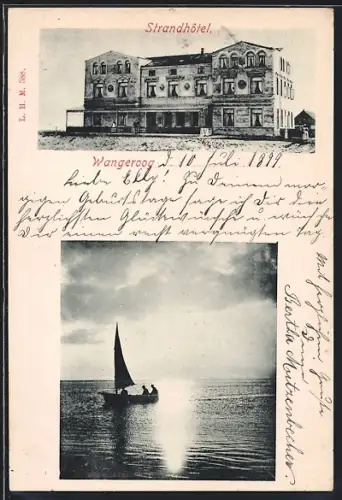 Strandhôtel.
L. H. M. 588.
Wangeroog d. 10 Juli 1899.
Liebe Elly! Zu Deinem mor-
gigen Geburtstage sage ich Dir den
herzlichsten Glückwunsch u. wünsche
Dir einen recht vergnügten Tag
Mit herzlichem Gruße
Deine
Bertha Mutzenbecher.